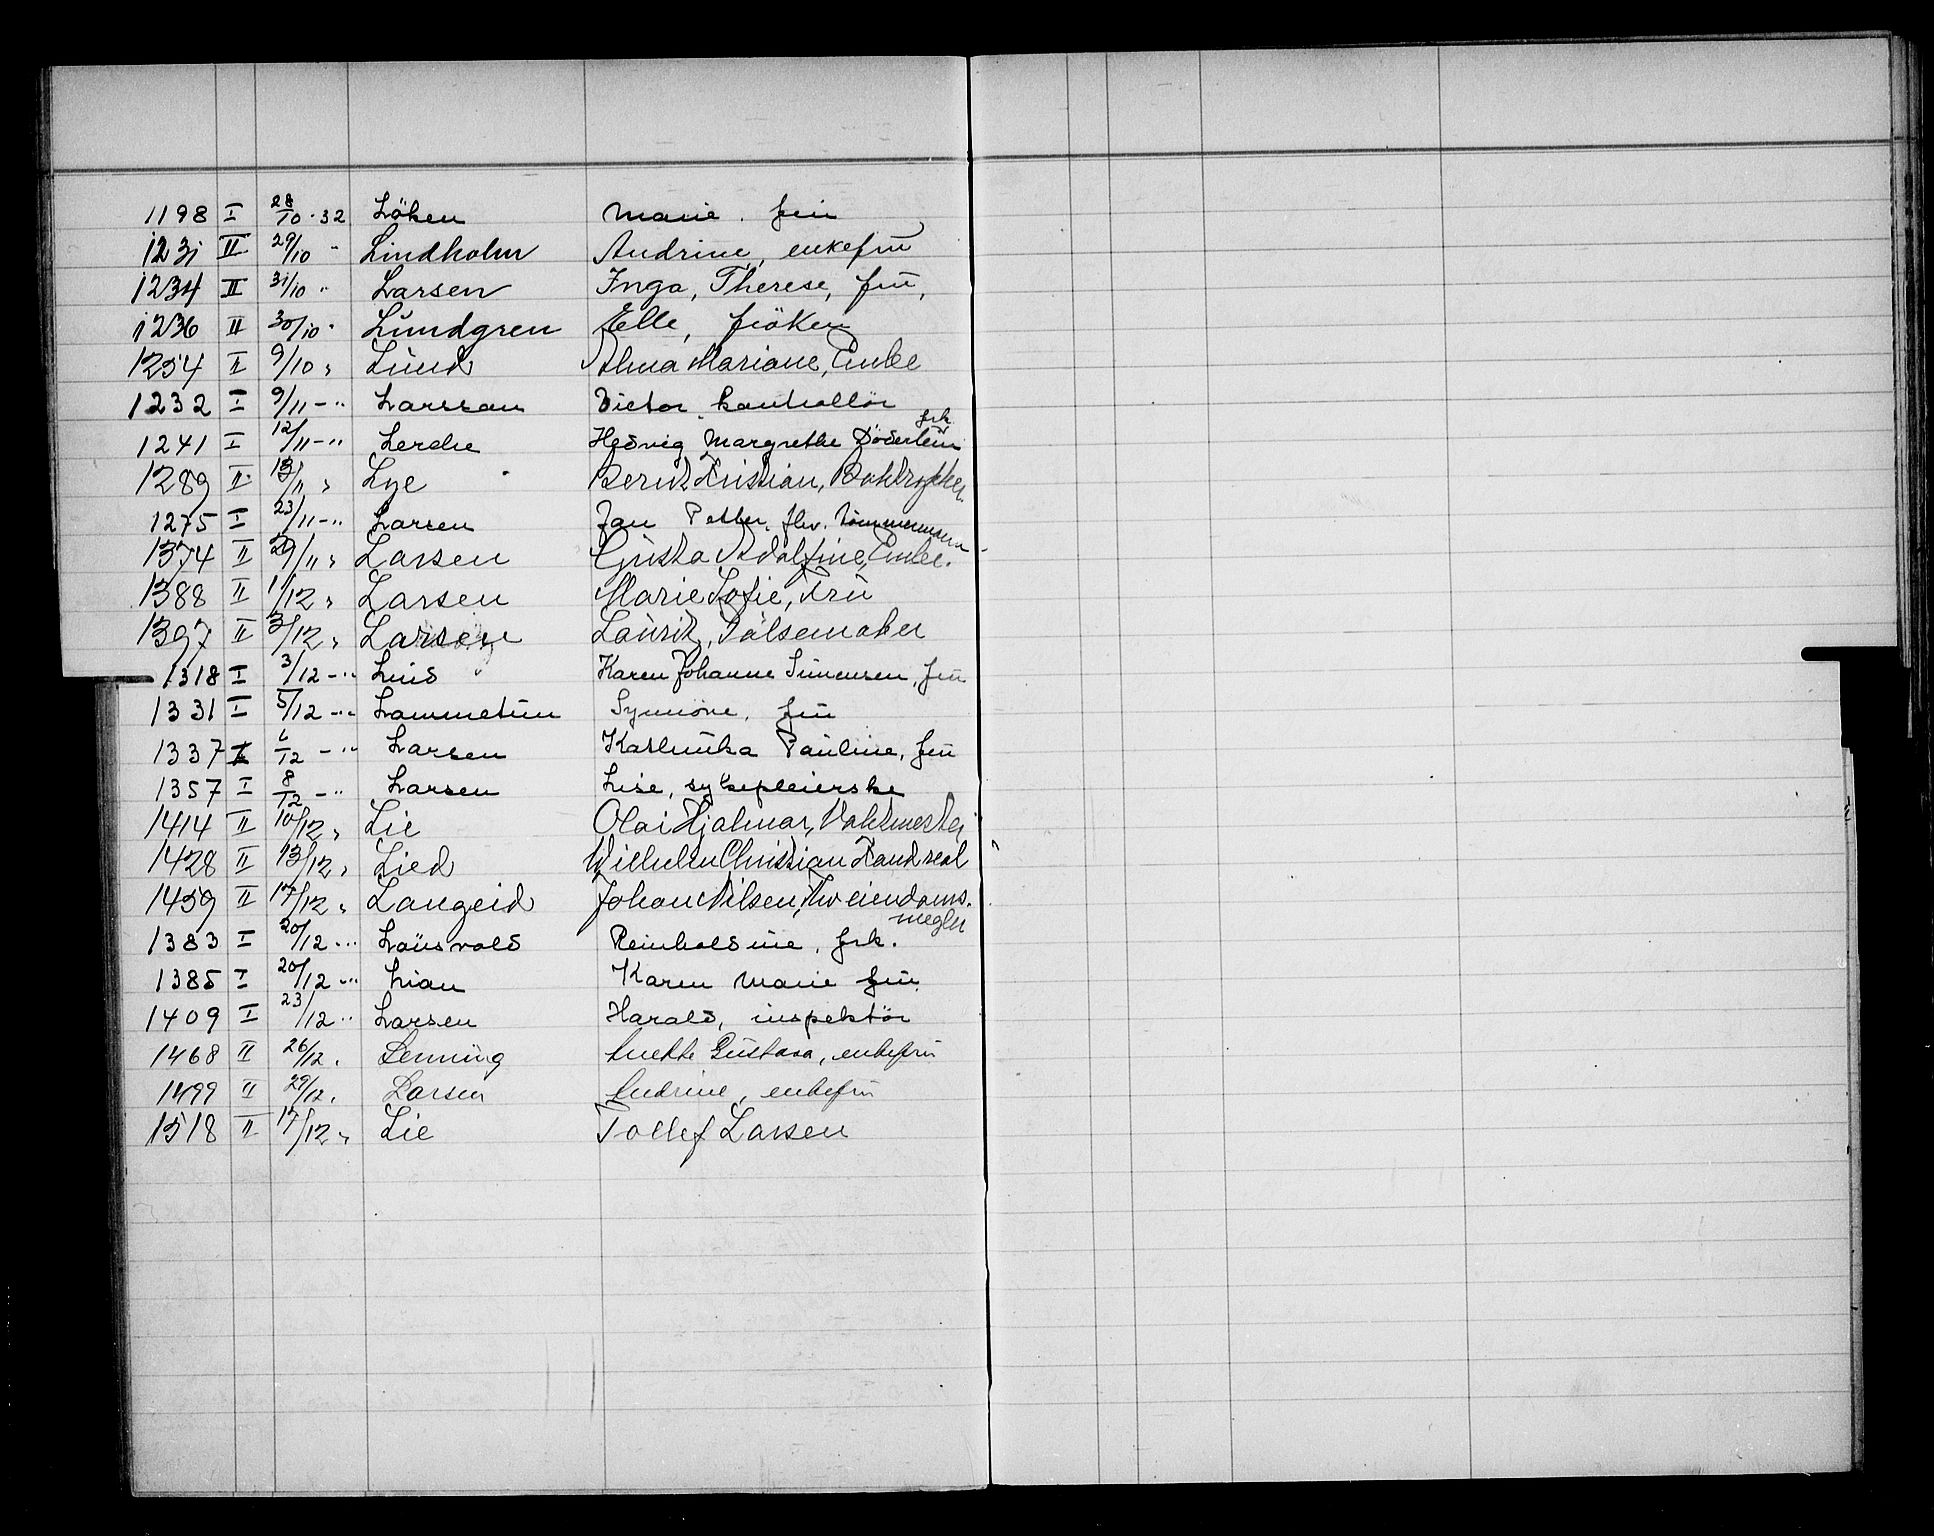 1198 I 28/10-32 Löken Marie. frü
1231 II 29/10 " Lindholm Andrine, enkefrü
1234 II 31/10 " Larsen Inga, Therese, frü,
1236 II 30/10 " Lündgren Elle, fröken
1254 II 9/10 " Lünd Alma Mariane, Enke
1232 I 9/11-" Larssan Victor, kontrollör
1241 I 12/11-" Lerche Hedvig Margrethe Döderlein frk.
1289 II 13/11 " Lye Bernt Kristian,
1275 I 23/11-" Larsen Jan Petter, fhv. tömmermann
1374 II 29/11 " Larsen Güsta Adolfine, Enke.
1388 II 1/12 " Larsen Marie Sofie, Frü
1397 II 3/12 " Larsen Laüritz, Pölsemaker
1318 I 3/12-" Lüid Karen Johanne Simensen, frü
1331 I 5/12-" Lammetün Synnöve, frü
1337 I 6/12-" Larsen Pauline, frü
1357 I 8/12-" Larsen Lise, sykepleierske
1414 II 10/12 " Lie Olai Hjalmar, Vaktmester
1428 II 13/12 " Lied Wilhelm Christian Kand real
1459 II 17/12 " Langeid Johan Nilsen, Fhv eiendoms-
megler
1383 I 20/12-" Laüsvold Reinholdine, frk.
1385 I 20/12-" Lian Karen Marie frü
1409 I 23/12 " Larsen Harald, inspektör
1468 II 26/12 " Lenning Anette Güstava, enkefrü
1499 II 29/12 " Larsen Andrine, enkefrü
1518 II 17/12 " Lie Tollef Larsen